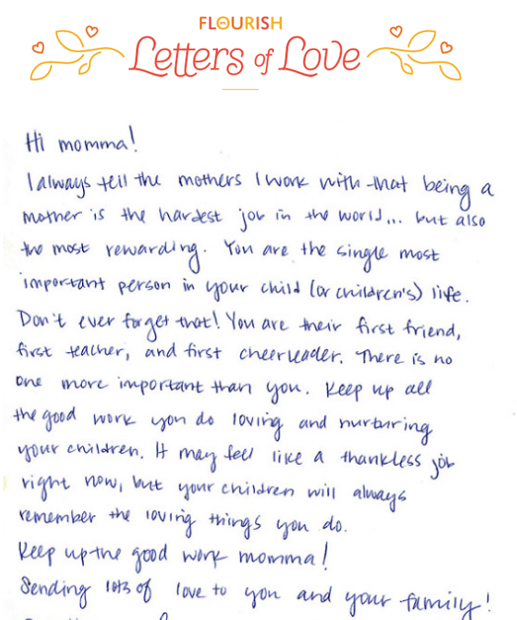 FLOURISH
Letters of Love
Hi momma!
I always tell the mothers I work with that being a
mother is the hardest job in the world... but also
the most rewarding. You are the single most
important person in your child (or children's) life.
Don't ever forget that! You are their first friend,
first teacher, and first cheerleader. There is no
one more important than you. Keep up all
the good work you do loving and nurturing
your children. It may feel like a thankless job
right now, but your children will always
remember the loving things you do.
Keep up the good work momma!
Sending lots of love to you and your family!